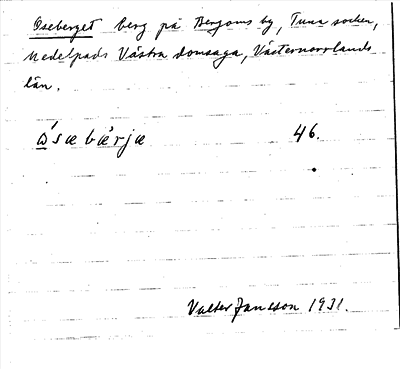 Oseberget berg på Bergoms by, Tuna socken,
Medelpads Västra domsaga, Västernorrlands
län.
ώsæbæ̀rjæ 46.
Valter Jansson 1931.